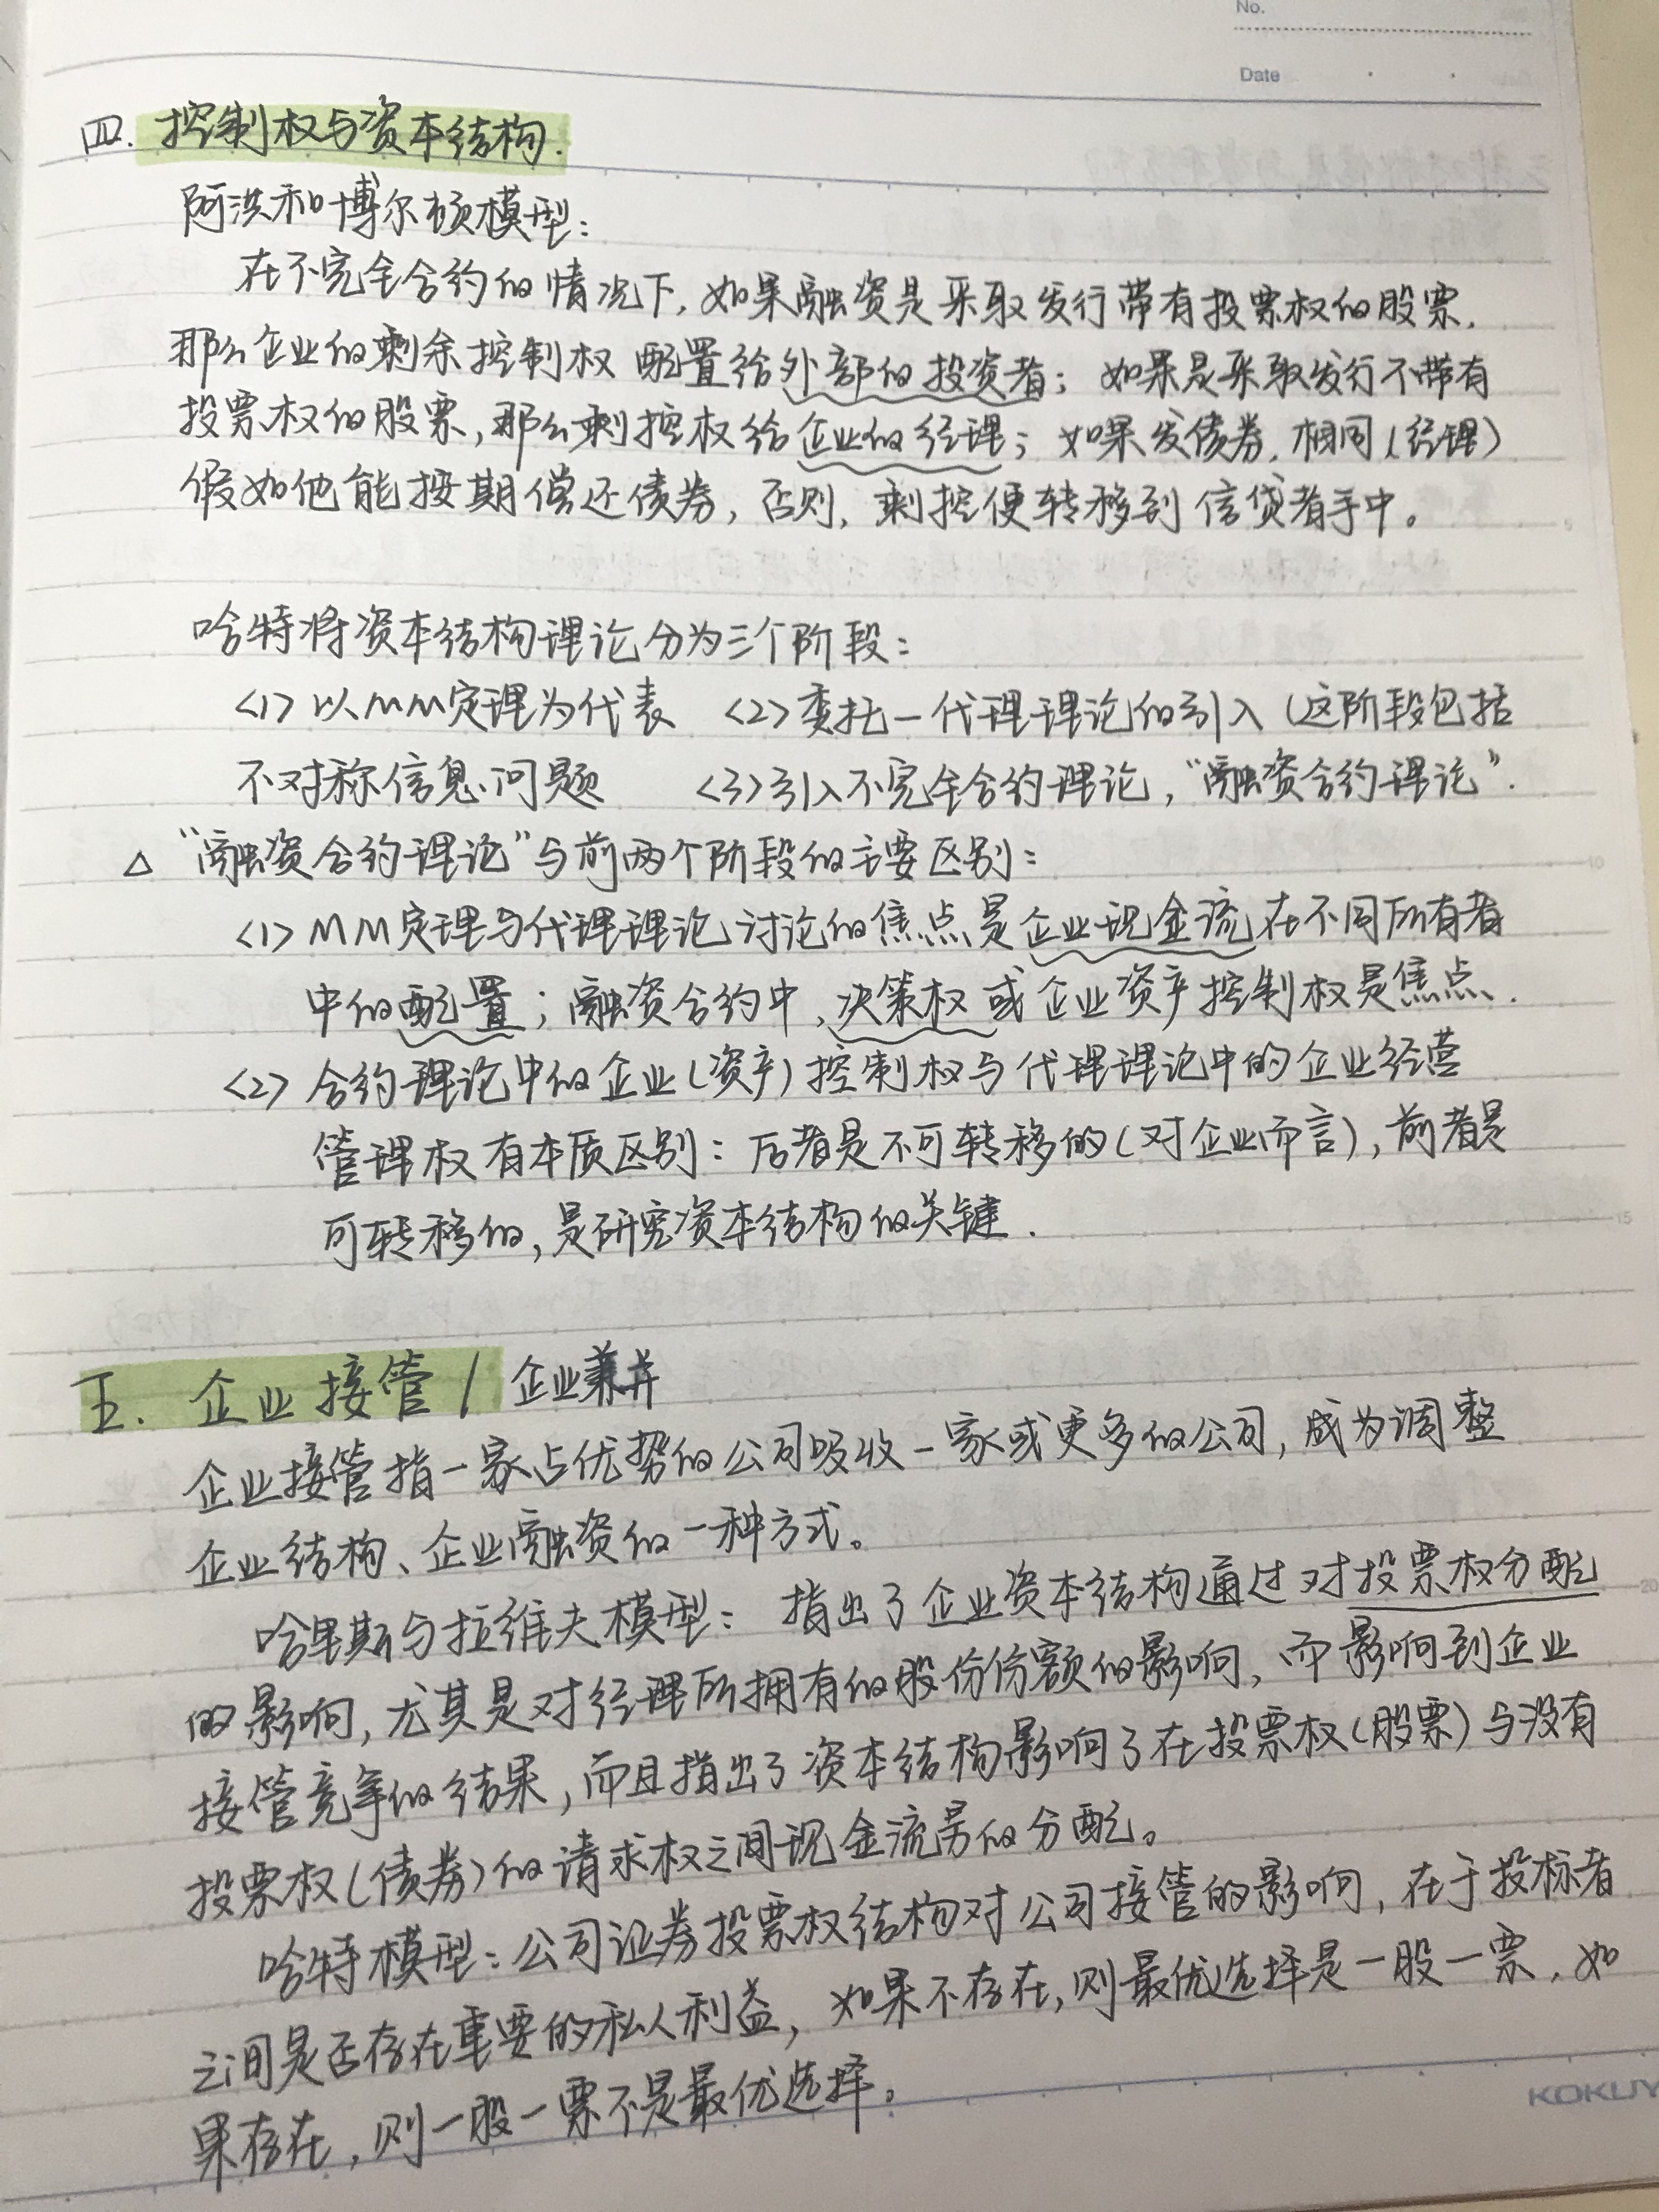 No.
Date
四. 控制权与资本结构.
阿洪和博尔顿模型:
在不完全合约的情况下, 如果融资是采取发行带有投票权的股票,
那么企业的剩余控制权 配置给外部的投资者; 如果是采取发行不带有
投票权的股票, 那么剩控权给企业的经理; 如果发债券, 相同(经理)
假如他能按期偿还债券, 否则, 剩控便转移到信贷者手中。
哈特将资本结构理论分为三个阶段:
<1> 以MM定理为代表 <2> 委托一代理理论的引入 (这阶段包括
不对称信息问题 <3> 引入不完全合约理论, “融资合约理论”.
△ “融资合约理论”与前两个阶段的主要区别:
<1> MM定理与代理理论讨论的焦点是企业现金流在不同所有者
中的配置; 融资合约中, 决策权或企业资产控制权是焦点.
<2> 合约理论中的企业(资产)控制权与代理理论中的企业经营
管理权有本质区别: 后者是不可转移的(对企业而言), 前者是
可转移的, 是研究资本结构的关键.
五. 企业接管 / 企业兼并
企业接管指一家占优势的公司吸收一家或更多的公司, 成为调整
企业结构、企业融资的一种方式。
哈里斯与拉维夫模型: 指出了企业资本结构通过对投票权分配
的影响, 尤其是对经理所拥有的股份份额的影响, 而影响到企业
接管竞争的结果, 而且指出了资本结构影响了在投票权(股票)与没有
投票权(债券)的请求权之间现金流的分配。
哈特模型: 公司证券投票权结构对公司接管的影响, 在于投标者
之间是否存在重要的私人利益, 如果不存在, 则最优选择是一股一票, 如
果存在, 则一股一票不是最优选择。
KOKUY